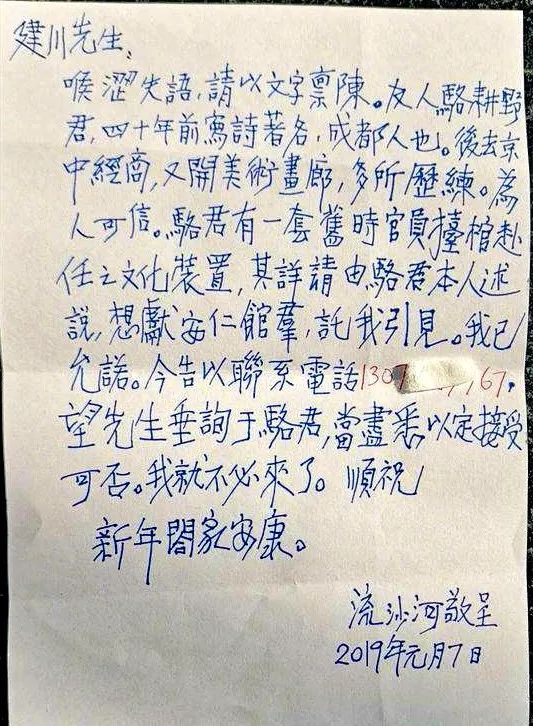 建川先生：
喉澀失語，請以文字禀陳。友人駱耕野
君，四十年前寫詩著名，成都人也。後去京
中經商，又開美術畫廊，多所歷練。為
人可信。駱君有一套舊時官員擡棺赴
任之文化裝置，其詳請由駱君本人述
説，想獻安仁館羣，託我引見。我已
允諾。今告以聯系電話1307 67，
望先生垂詢于駱君，當盡悉，以定接受
可否。我就不必來了。順祝
新年閤家安康。
流沙河敬呈
2019年元月7日